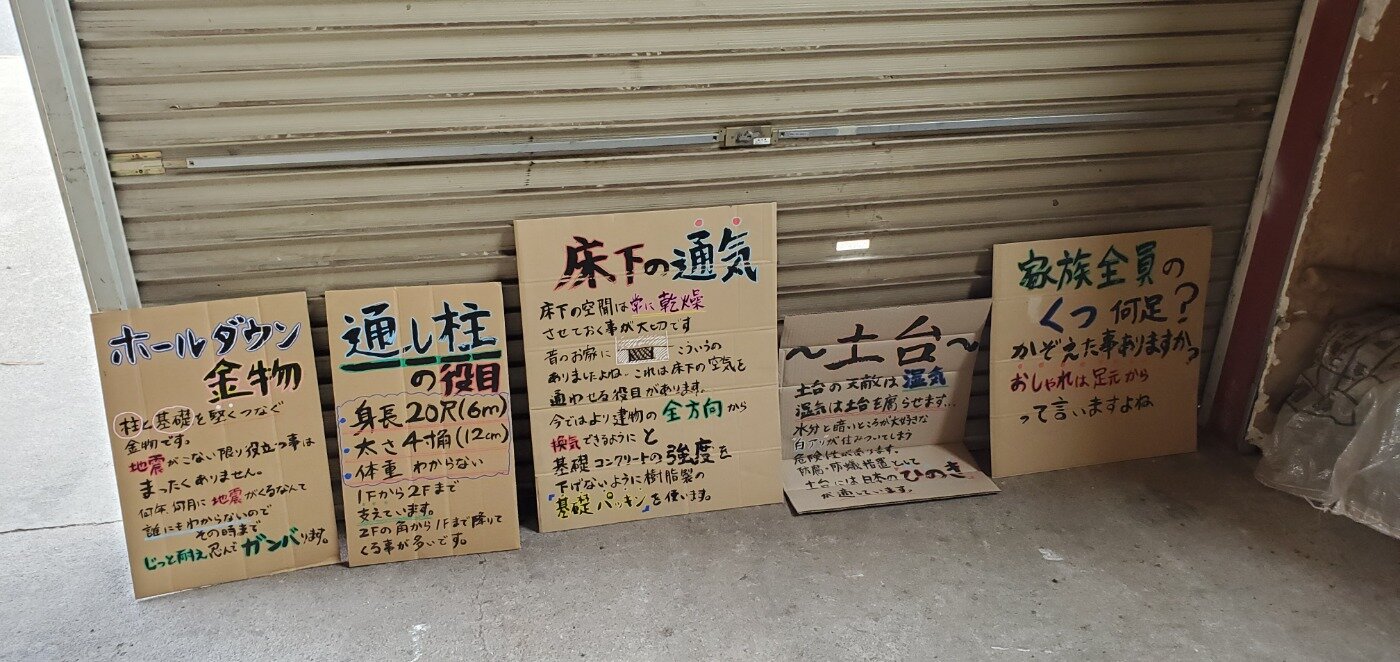 ホールダウン
金物
柱と基礎を堅くつなぐ
金物です。
地震がこない限り役立つ事は
まったくありません。
何年何月に地震がくるなんて
誰にもわからないので
その時まで
じっと耐え忍んでガンバります。
通し柱
の役目
・身長20尺(6m)
・太さ4寸角(12cm)
・体重 わからない
1Fから2Fまで
支えています。
2Fの角から1Fまで降りて
くる事が多いです。
床下の通気
床下の空間は常に乾燥
させておく事が大切です
昔のお家に こういうの
ありましたよね…これは床下の空気を
通わせる役目があります。
今ではより建物の全方向から
換気できるようにと
基礎コンクリートの強度を
下げないように樹脂製の
「基礎パッキン」を使います。
～土台～
土台の天敵は湿気
湿気は土台を腐らせます…
水分と暗いところが大好きな
白アリが住みついてしまう
危険性があります。
防腐・防蟻措置として
土台には日本のひのき
が適しています。
家族全員の
くつ何足?
かぞえた事ありますかっ
おしゃれは足元から
って言いますよね